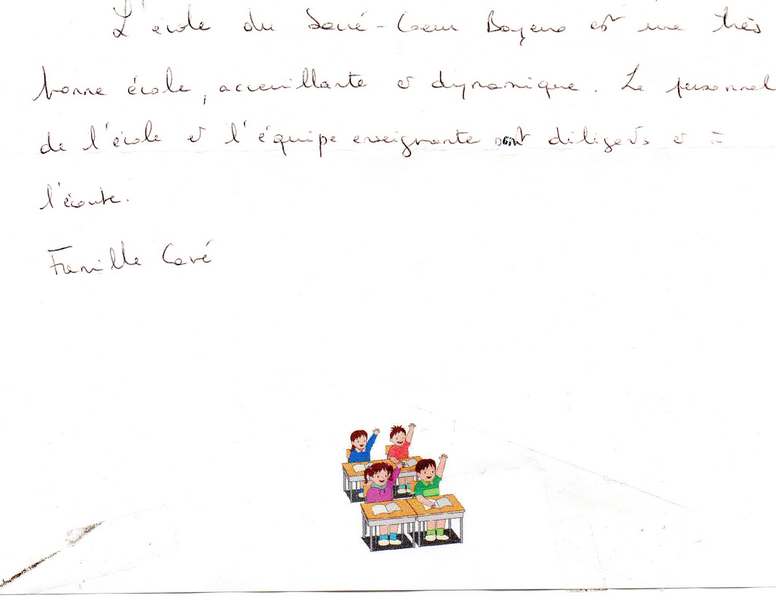 L'école du Sacré-Coeur Bayeux est une très
bonne école, accueillante et dynamique. Le personnel
de l'école et l'équipe enseignante sont diligents et à
l'écoute.
Famille Cavé